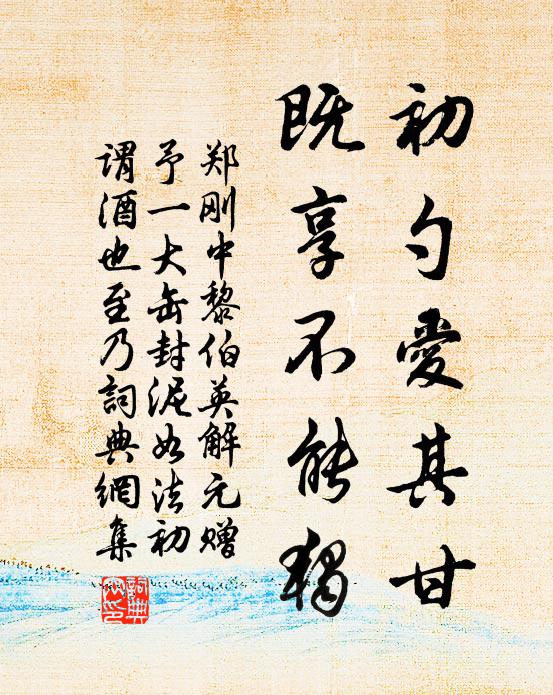 初勺愛其甘
既享不能獨
郑刚中黎伯英解元赠
予一大缶封泥如法初
谓酒也至乃詞典網集